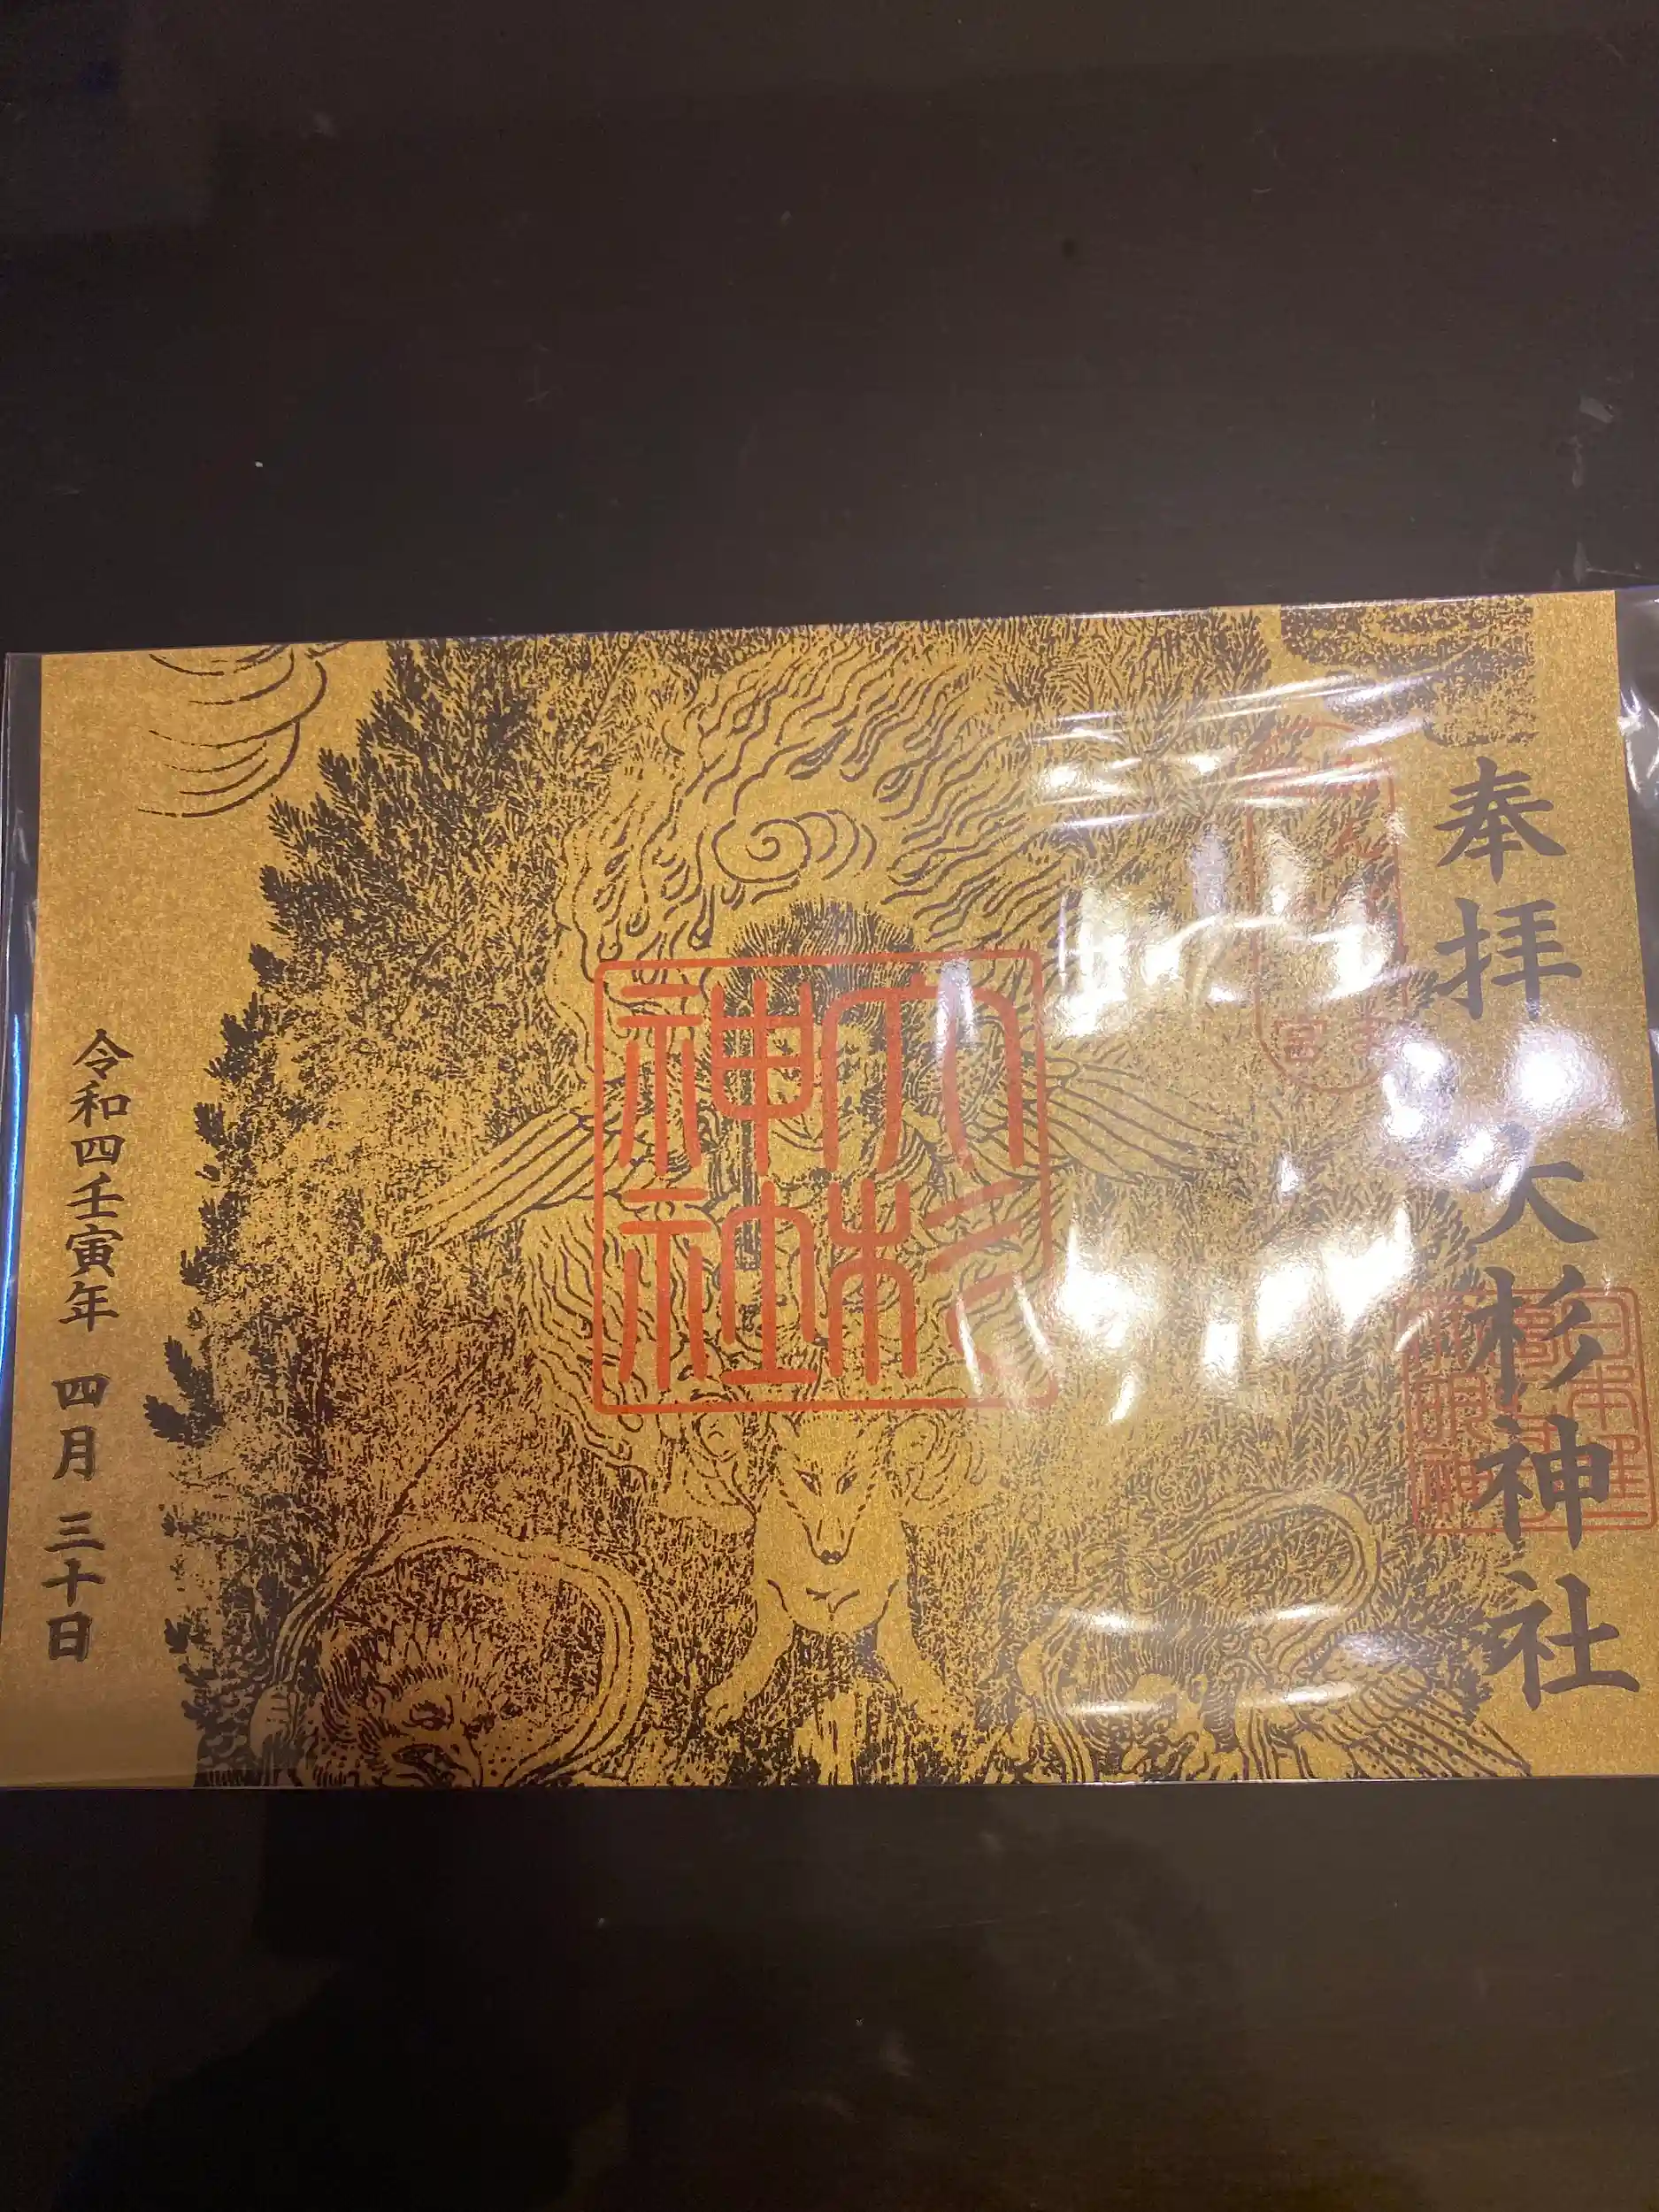 奉拝 大杉神社
大杉神社
令和四壬寅年 四月 三十日